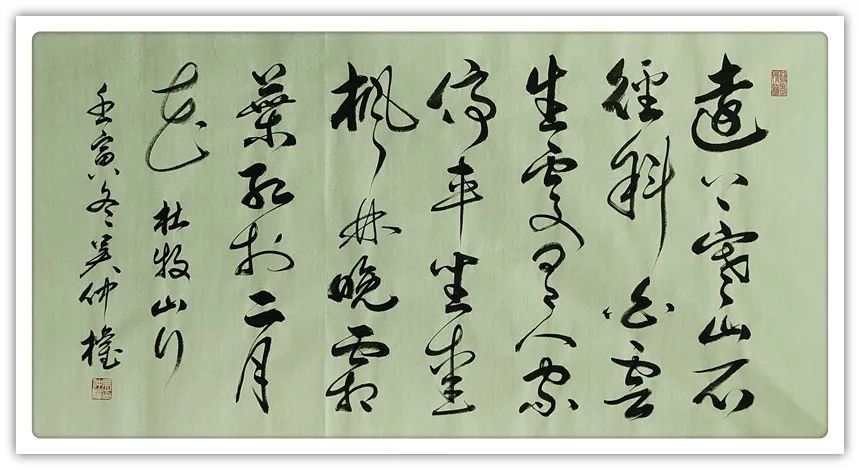 遠上寒山石
徑斜白雲
生處有人家
停車坐愛
楓林晚霜
葉紅於二月
花 杜牧山行
壬寅冬吳仲